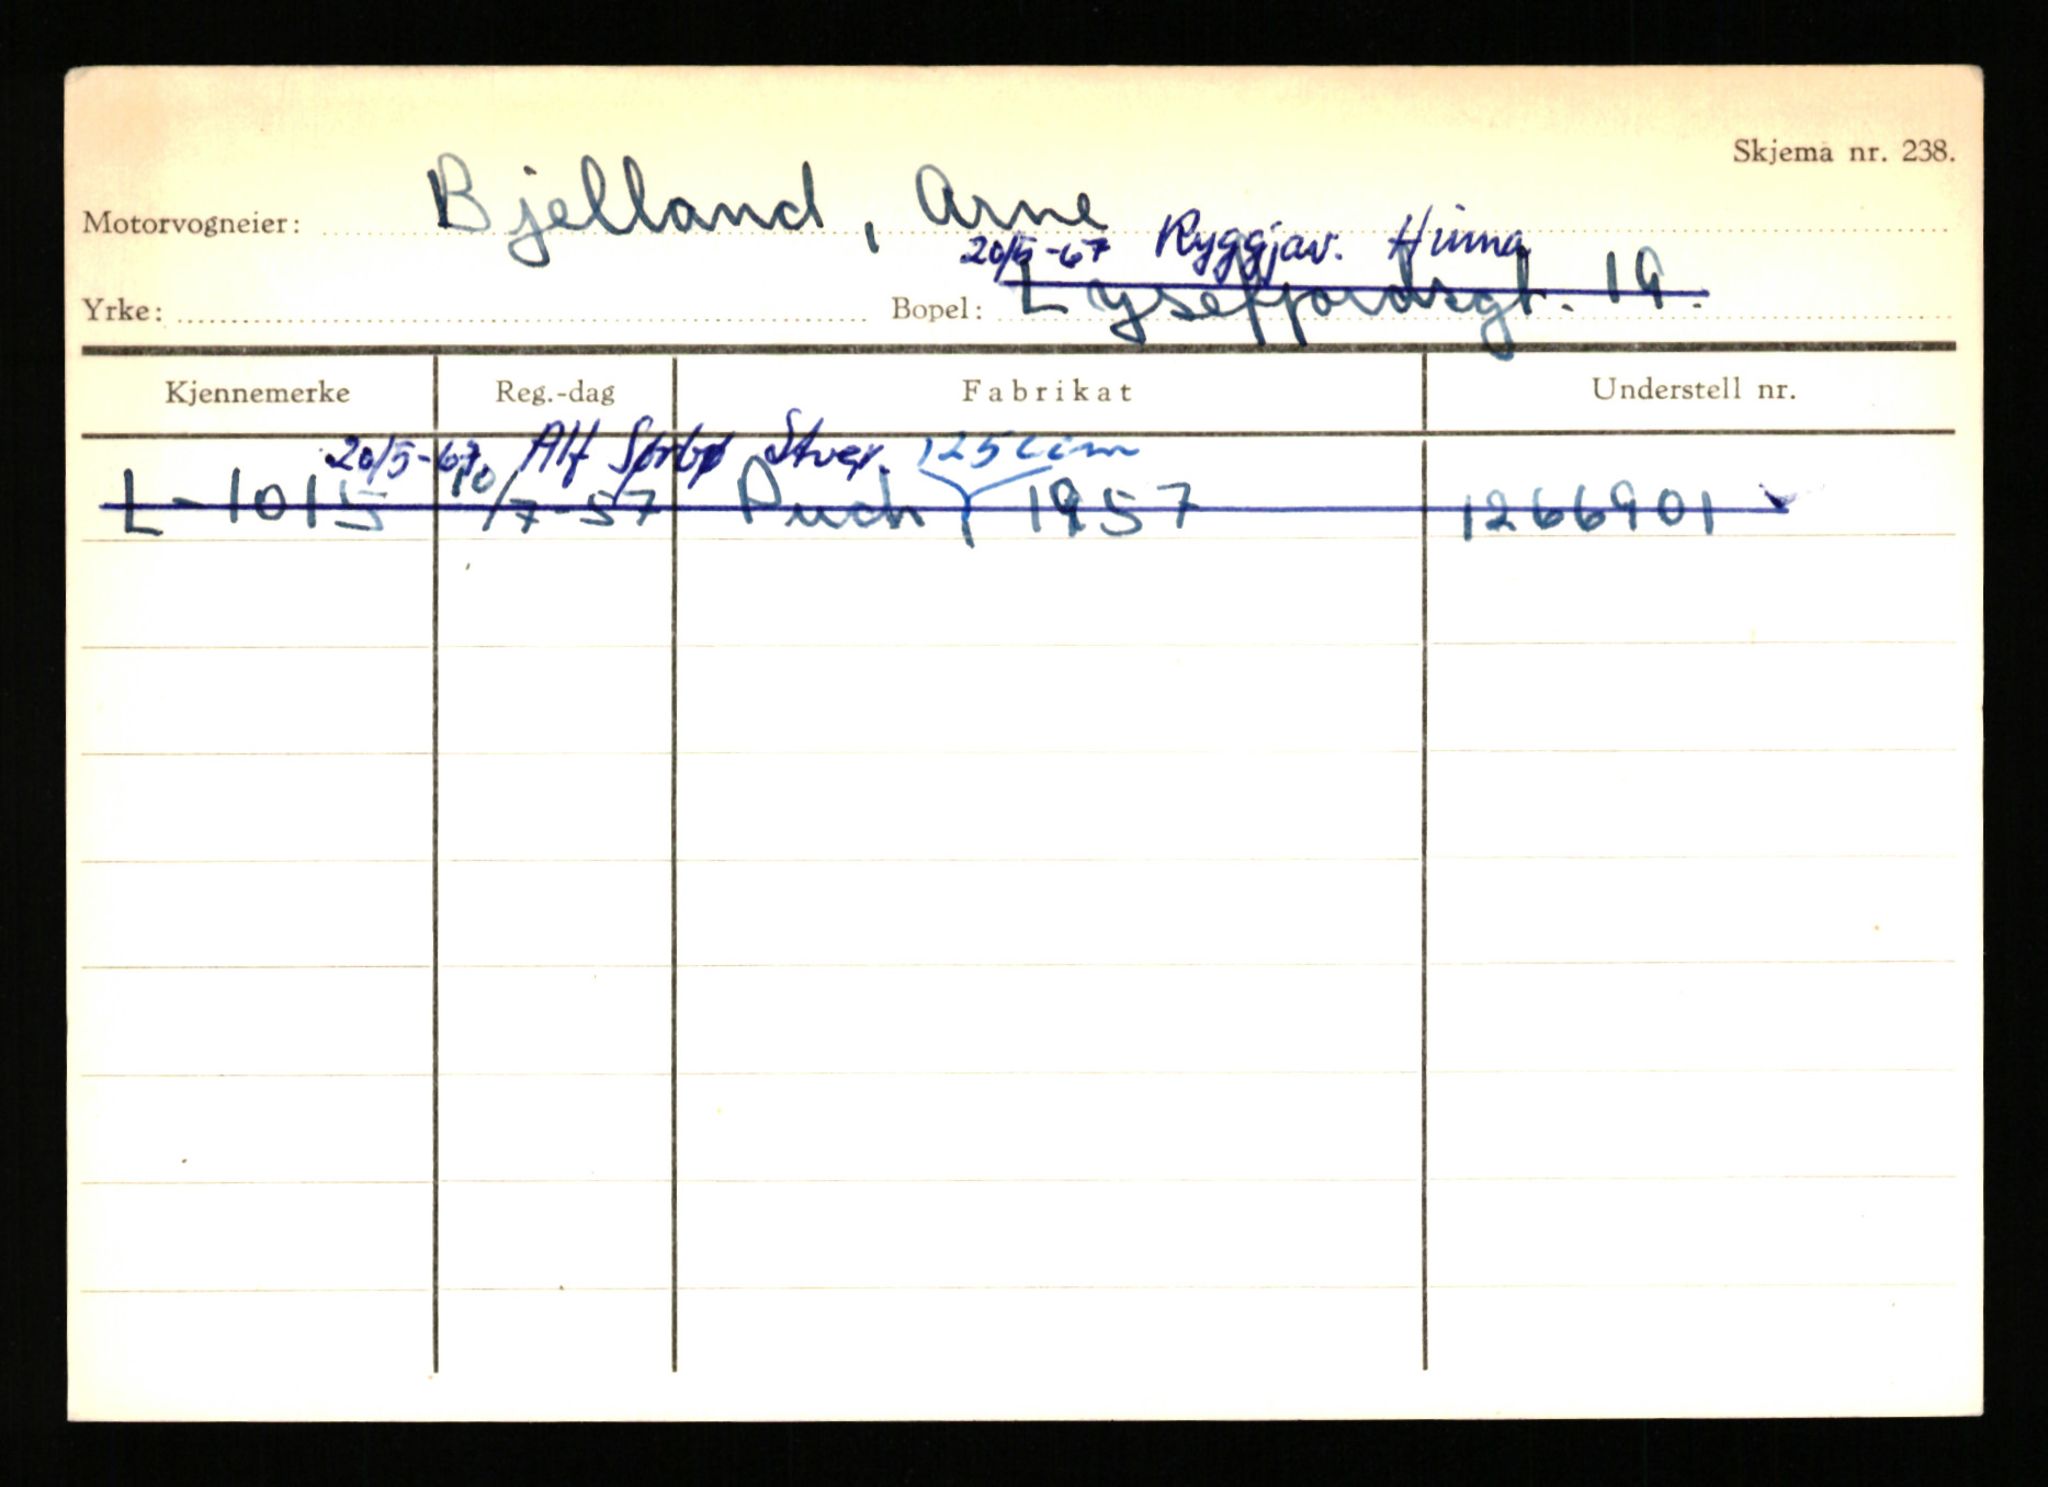 Skjema nr. 238.
Motorvogneier: Bjelland, Arne
20/5-67 Ryggjav. Hinna
Yrke: Bopel: Lysefjordsgt. 19.
Kjennemerke Reg.-dag Fabrikat Understell nr.
20/5-67. Alf Sørbø Stvgr. 125 ccm
L-1015 10/7-57 Puch 1957 1266901